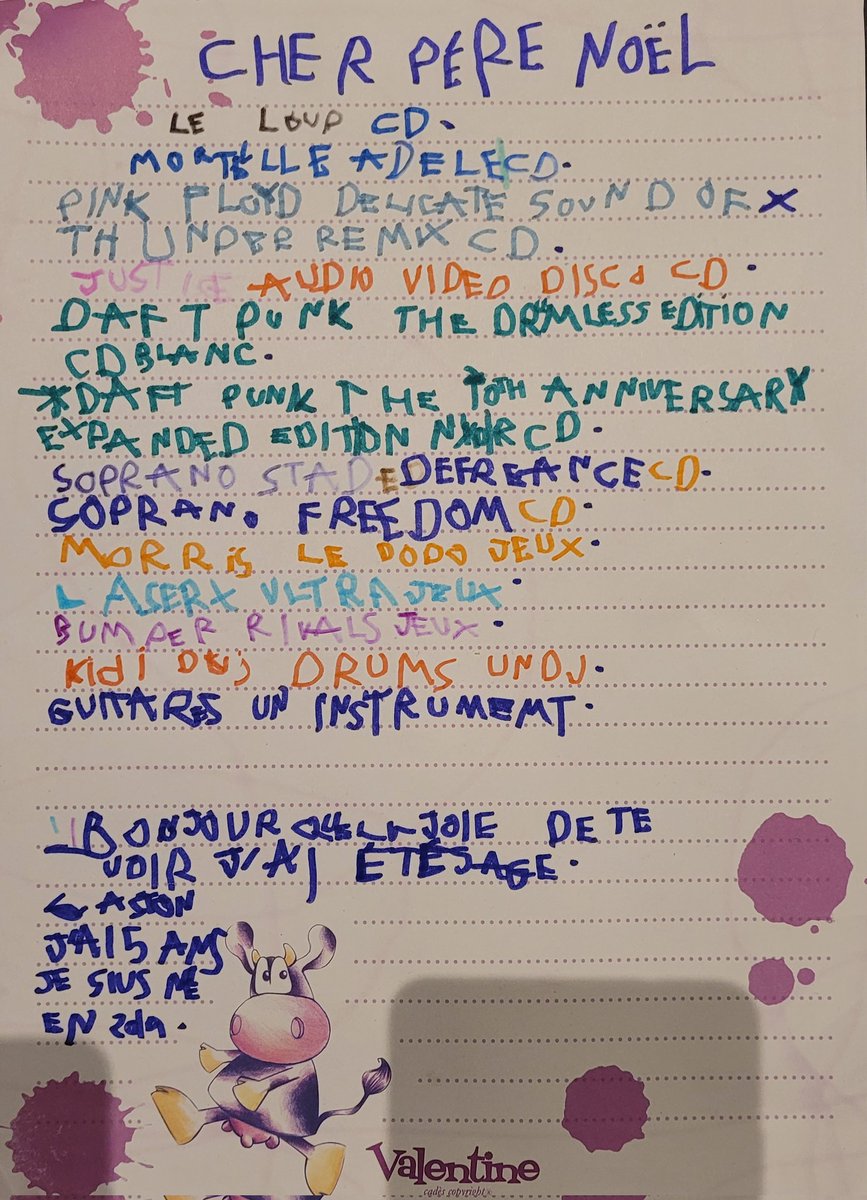 CHER PÉRE NOËL
LE LOUP CD.
MORTÉLLE ADELE CD.
PINK FLOYD DELICATE SOUND OF X
THUNDER REMIX CD.
JUSTICE AUDIO VIDEO DISCO CD.
DAFT PUNK THE DRMLESS EDITION
CD BLANC.
*DAFT PUNK THE 10TH ANNIVERSARY
EXPANDED EDITION CD.
SOPRANO STADE DEFREANCE CD.
SOPRANO FREEDOM CD.
MORRIS LE DODO JEUX.
LASERX ULTRA JEUX.
BUMPER RIVALS JEUX.
KIDI DRUMS UN DJ.
GUITARES UN INSTRUMEMT.
BONJOUR JOIE DE TE
VOIR J'AI ÉTÉ SAGE.
GASTON
J'AI 5 ANS
JE SIUS NÉ
EN
Valentine
cadès copyright®